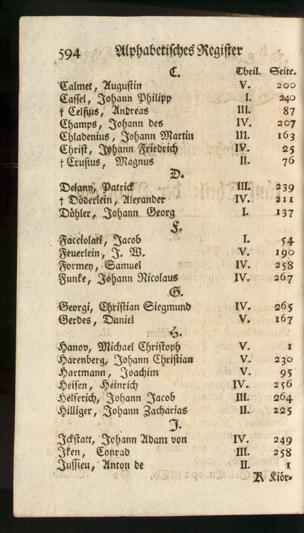 594 Alphabetisches Register
C. Theil. Seite.
Calmet, Augustin V. 200
Cassel, Johann Philipp I. 240
† Celsius, Andreas III. 87
Champs, Johann des IV. 207
Chladenius, Johann Martin III. 163
Christ, Johann Friedrich IV. 25
† Crusius, Magnus II. 76
D.
Delany, Patrick III. 239
† Döderlein, Alexander IV. 211
Döhler, Johann Georg I. 137
F.
Facciolati, Jacob I. 54
Feuerlein, J. W. V. 190
Formey, Samuel IV. 258
Funke, Johann Nicolaus IV. 267
G.
Georgi, Christian Siegmund IV. 265
Gerdes, Daniel V. 167
H.
Hanov, Michael Christoph V. 1
Harenberg, Johann Christian V. 230
Hartmann, Joachim V. 95
Heisen, Heinrich IV. 256
Helferich, Johann Jacob III. 264
Hilliger, Johann Zacharias II. 225
J.
Ickstatt, Johann Adam von IV. 249
Iken, Conrad III. 258
Jussieu, Anton de II. 1
R Kiör-